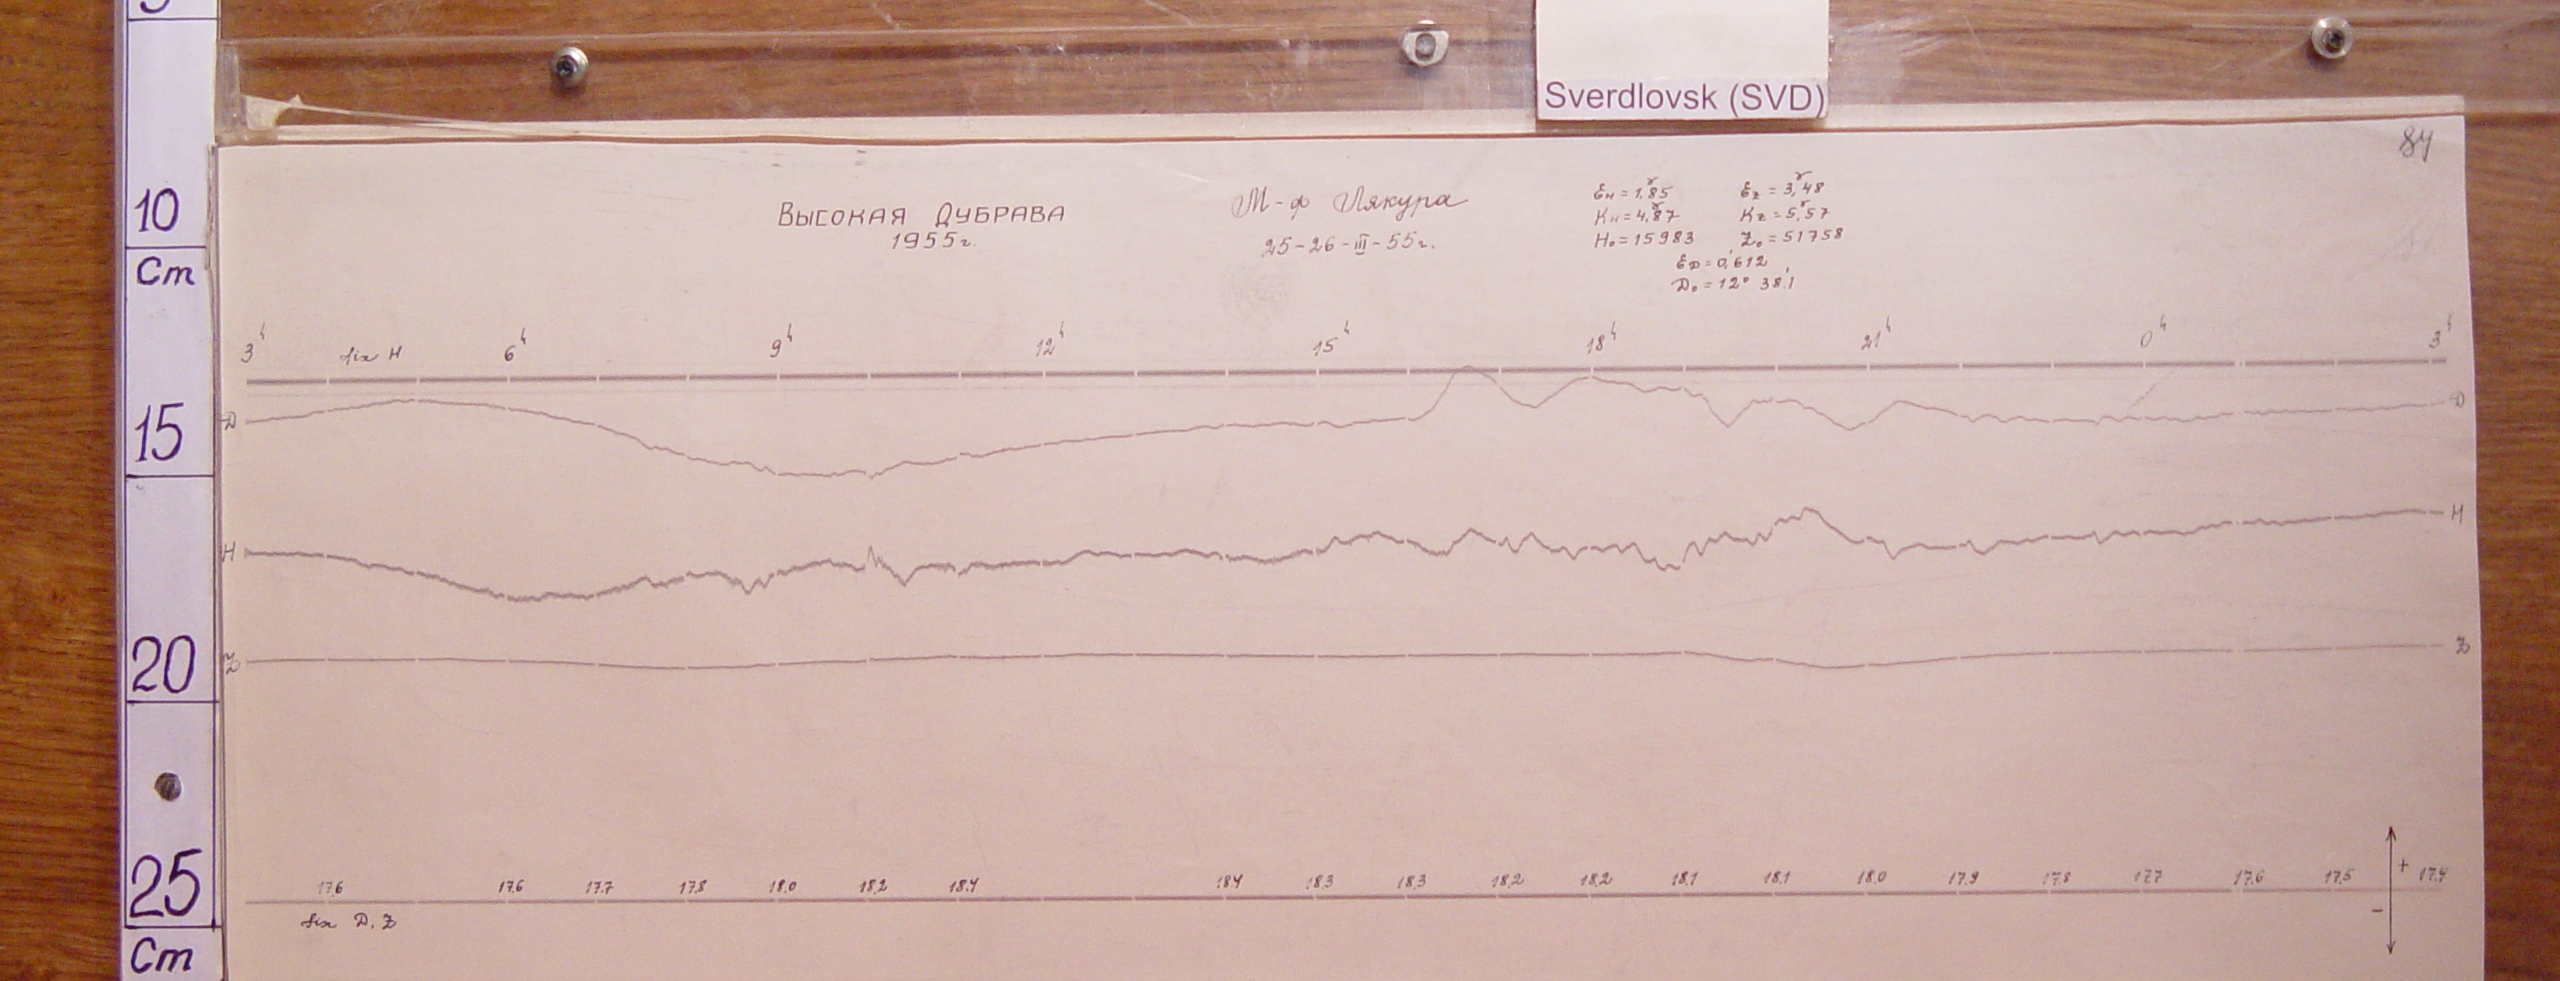 Sverdlovsk (SVD)
84
Высокая Дубрава
1955г.
М-ф Лякура
25-26-III-55г.
Ен=1,85 Еz=3,48
Кн=4,87 Кz=5,57
Н₀=15983 Z₀=51758
ЕD=0,612
D₀=12° 38,1
3ʰ fix H 6ʰ 9ʰ 12ʰ 15ʰ 18ʰ 21ʰ 0ʰ 3ʰ
D D
H H
Z Z
17.6 17.6 17.7 17.8 18.0 18.2 18.4 18.4 18.3 18.3 18.2 18.2 18.1 18.1 18.0 17.9 17.8 17.7 17.6 17.5 + 17.4
-
fix D, Z
10
Cm
15
20
25
Cm